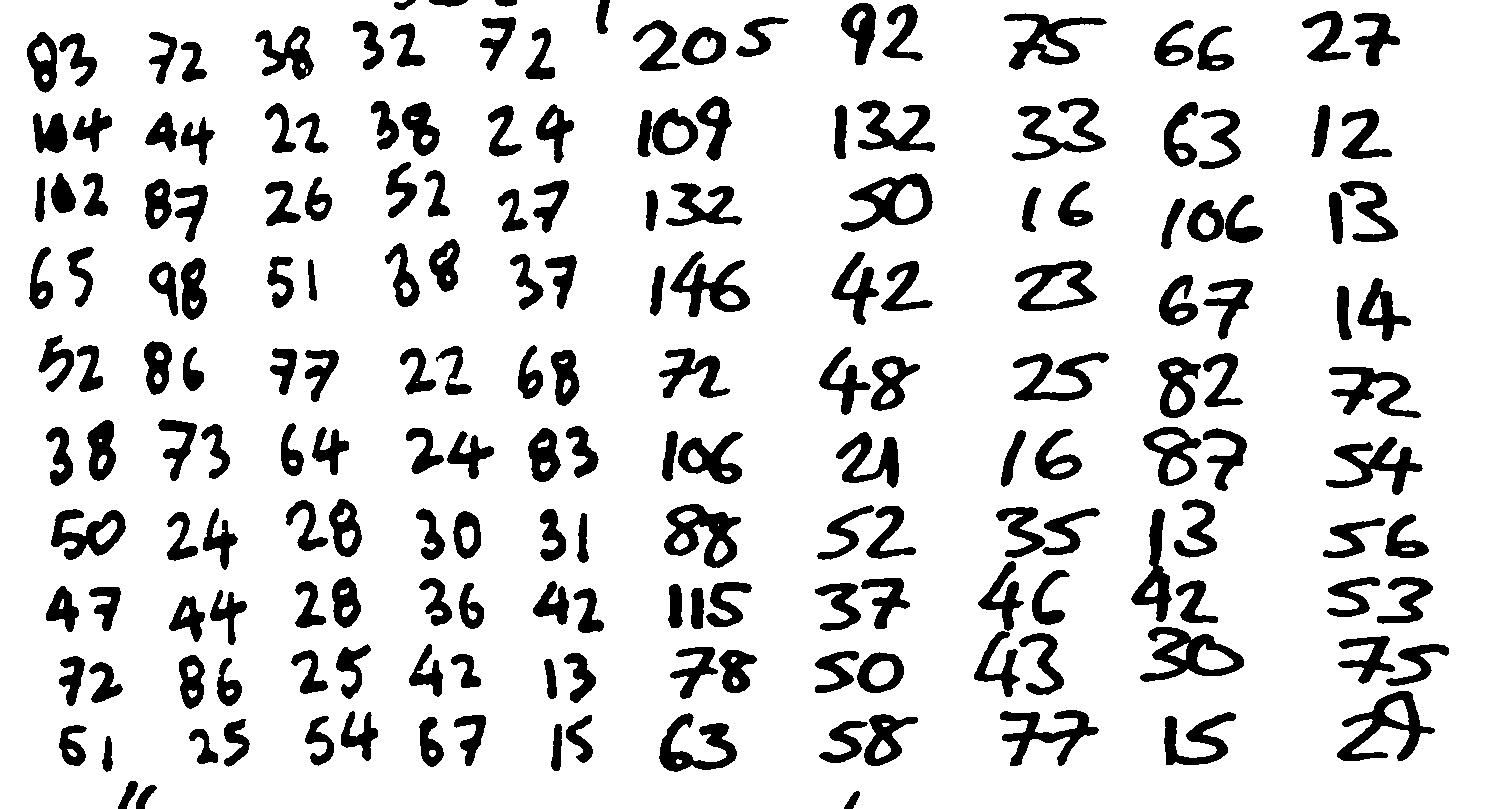 83 72 38 32 72 205 92 75 66 27
104 44 22 38 24 109 132 33 63 12
102 87 26 52 27 132 50 16 106 13
65 98 51 38 37 146 42 23 67 14
52 86 77 22 68 72 48 25 82 72
38 73 64 24 83 106 21 16 87 54
50 24 28 30 31 88 52 35 13 56
47 44 28 36 42 115 37 46 42 53
72 86 25 42 13 78 50 43 30 75
61 25 54 67 15 63 58 77 15